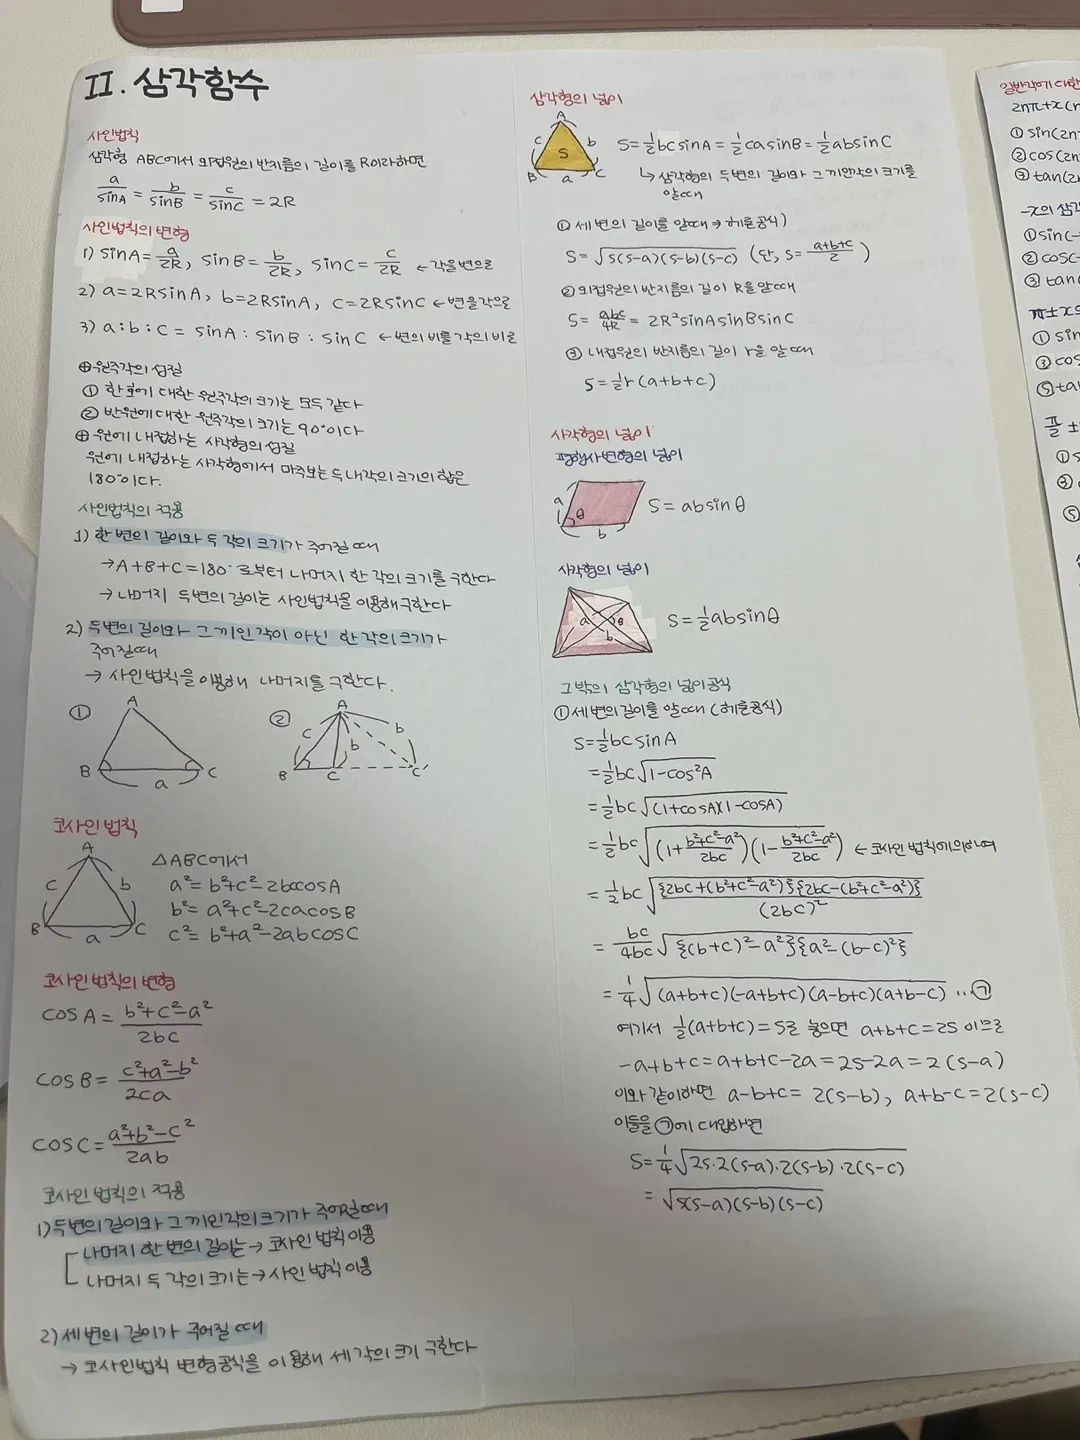 II. 삼각함수
사인법칙
삼각형 ABC에서 외접원의 반지름의 길이를 R이라하면
a/sinA = b/sinB = c/sinC = 2R
사인법칙의 변형
1) sinA = a/2R, sinB = b/2R, sinC = c/2R ← 각을 변으로
2) a=2RsinA, b=2RsinA, c=2RsinC ← 변을 각으로
3) a:b:c = sinA : sinB : sinC ← 변의 비를 각의 비로
⊕ 원주각의 성질
① 한 호에 대한 원주각의 크기는 모두 같다
② 반원에 대한 원주각의 크기는 90°이다
⊕ 원에 내접하는 사각형의 성질
원에 내접하는 사각형에서 마주보는 두 내각의 크기의 합은
180°이다.
사인법칙의 적용
1) 한 변의 길이와 두 각의 크기가 주어질 때
→ A+B+C=180°로부터 나머지 한 각의 크기를 구한다
→ 나머지 두변의 길이는 사인법칙을 이용해 구한다
2) 두변의 길이와 그 끼인 각이 아닌 한 각의 크기가
주어질때
→ 사인법칙을 이용해 나머지를 구한다.
① A B C a
② A B C C' c b b
코사인 법칙
A B C a b c
△ABC에서
a²= b²+c²-2bccosA
b²= a²+c²-2cacosB
c²= b²+a²-2abcosC
코사인 법칙의 변형
cosA = (b²+c²-a²)/2bc
cosB = (c²+a²-b²)/2ca
cosC = (a²+b²-c²)/2ab
코사인 법칙의 적용
1) 두변의 길이와 그 끼인각의 크기가 주어질때
나머지 한 변의 길이는 → 코사인 법칙 이용
나머지 두 각의 크기는 → 사인 법칙 이용
2) 세 변의 길이가 주어질 때
→ 코사인법칙 변형공식을 이용해 세 각의 크기 구한다
삼각형의 넓이
A B C a b c S
S=½bcsinA = ½casinB = ½absinC
↳ 삼각형의 두변의 길이와 그 끼인각의 크기를
알때
① 세 변의 길이를 알때 → 헤론공식)
S=√s(s-a)(s-b)(s-c) (단, s= (a+b+c)/2 )
② 외접원의 반지름의 길이 R을 알때
S= abc/4R = 2R²sinAsinBsinC
③ 내접원의 반지름의 길이 r을 알 때
S=½r(a+b+c)
사각형의 넓이
평행사변형의 넓이
a θ b
S=absinθ
사각형의 넓이
a θ b
S=½absinθ
그 밖의 삼각형의 넓이공식
① 세 변의 길이를 알 때 (헤론공식)
S=½bcsinA
=½bc√1-cos²A
=½bc√(1+cosA)(1-cosA)
=½bc√(1+ (b²+c²-a²)/2bc)(1- (b²+c²-a²)/2bc) ← 코사인 법칙에 의하여
=½bc√{2bc+(b²+c²-a²)}{2bc-(b²+c²-a²)}/(2bc)²
= bc/4bc √{(b+c)²-a²}{a²-(b-c)²}
=¼√(a+b+c)(-a+b+c)(a-b+c)(a+b-c) ‥㉠
여기서 ½(a+b+c)=s로 놓으면 a+b+c=2s 이므로
-a+b+c=a+b+c-2a=2s-2a=2(s-a)
이와 같이하면 a-b+c= 2(s-b), a+b-c=2(s-c)
이들을 ㉠에 대입하면
S=¼√2s·2(s-a)·2(s-b)·2(s-c)
=√s(s-a)(s-b)(s-c)
일반각에 대한
2nπ+x(n
① sin(2n
② cos(2n
③ tan(2
-x의 삼각
① sin(-
② cos(-
③ tan(
π±x의
① sin
③ cos
⑤ ta
π/2 ±
①
③
⑤